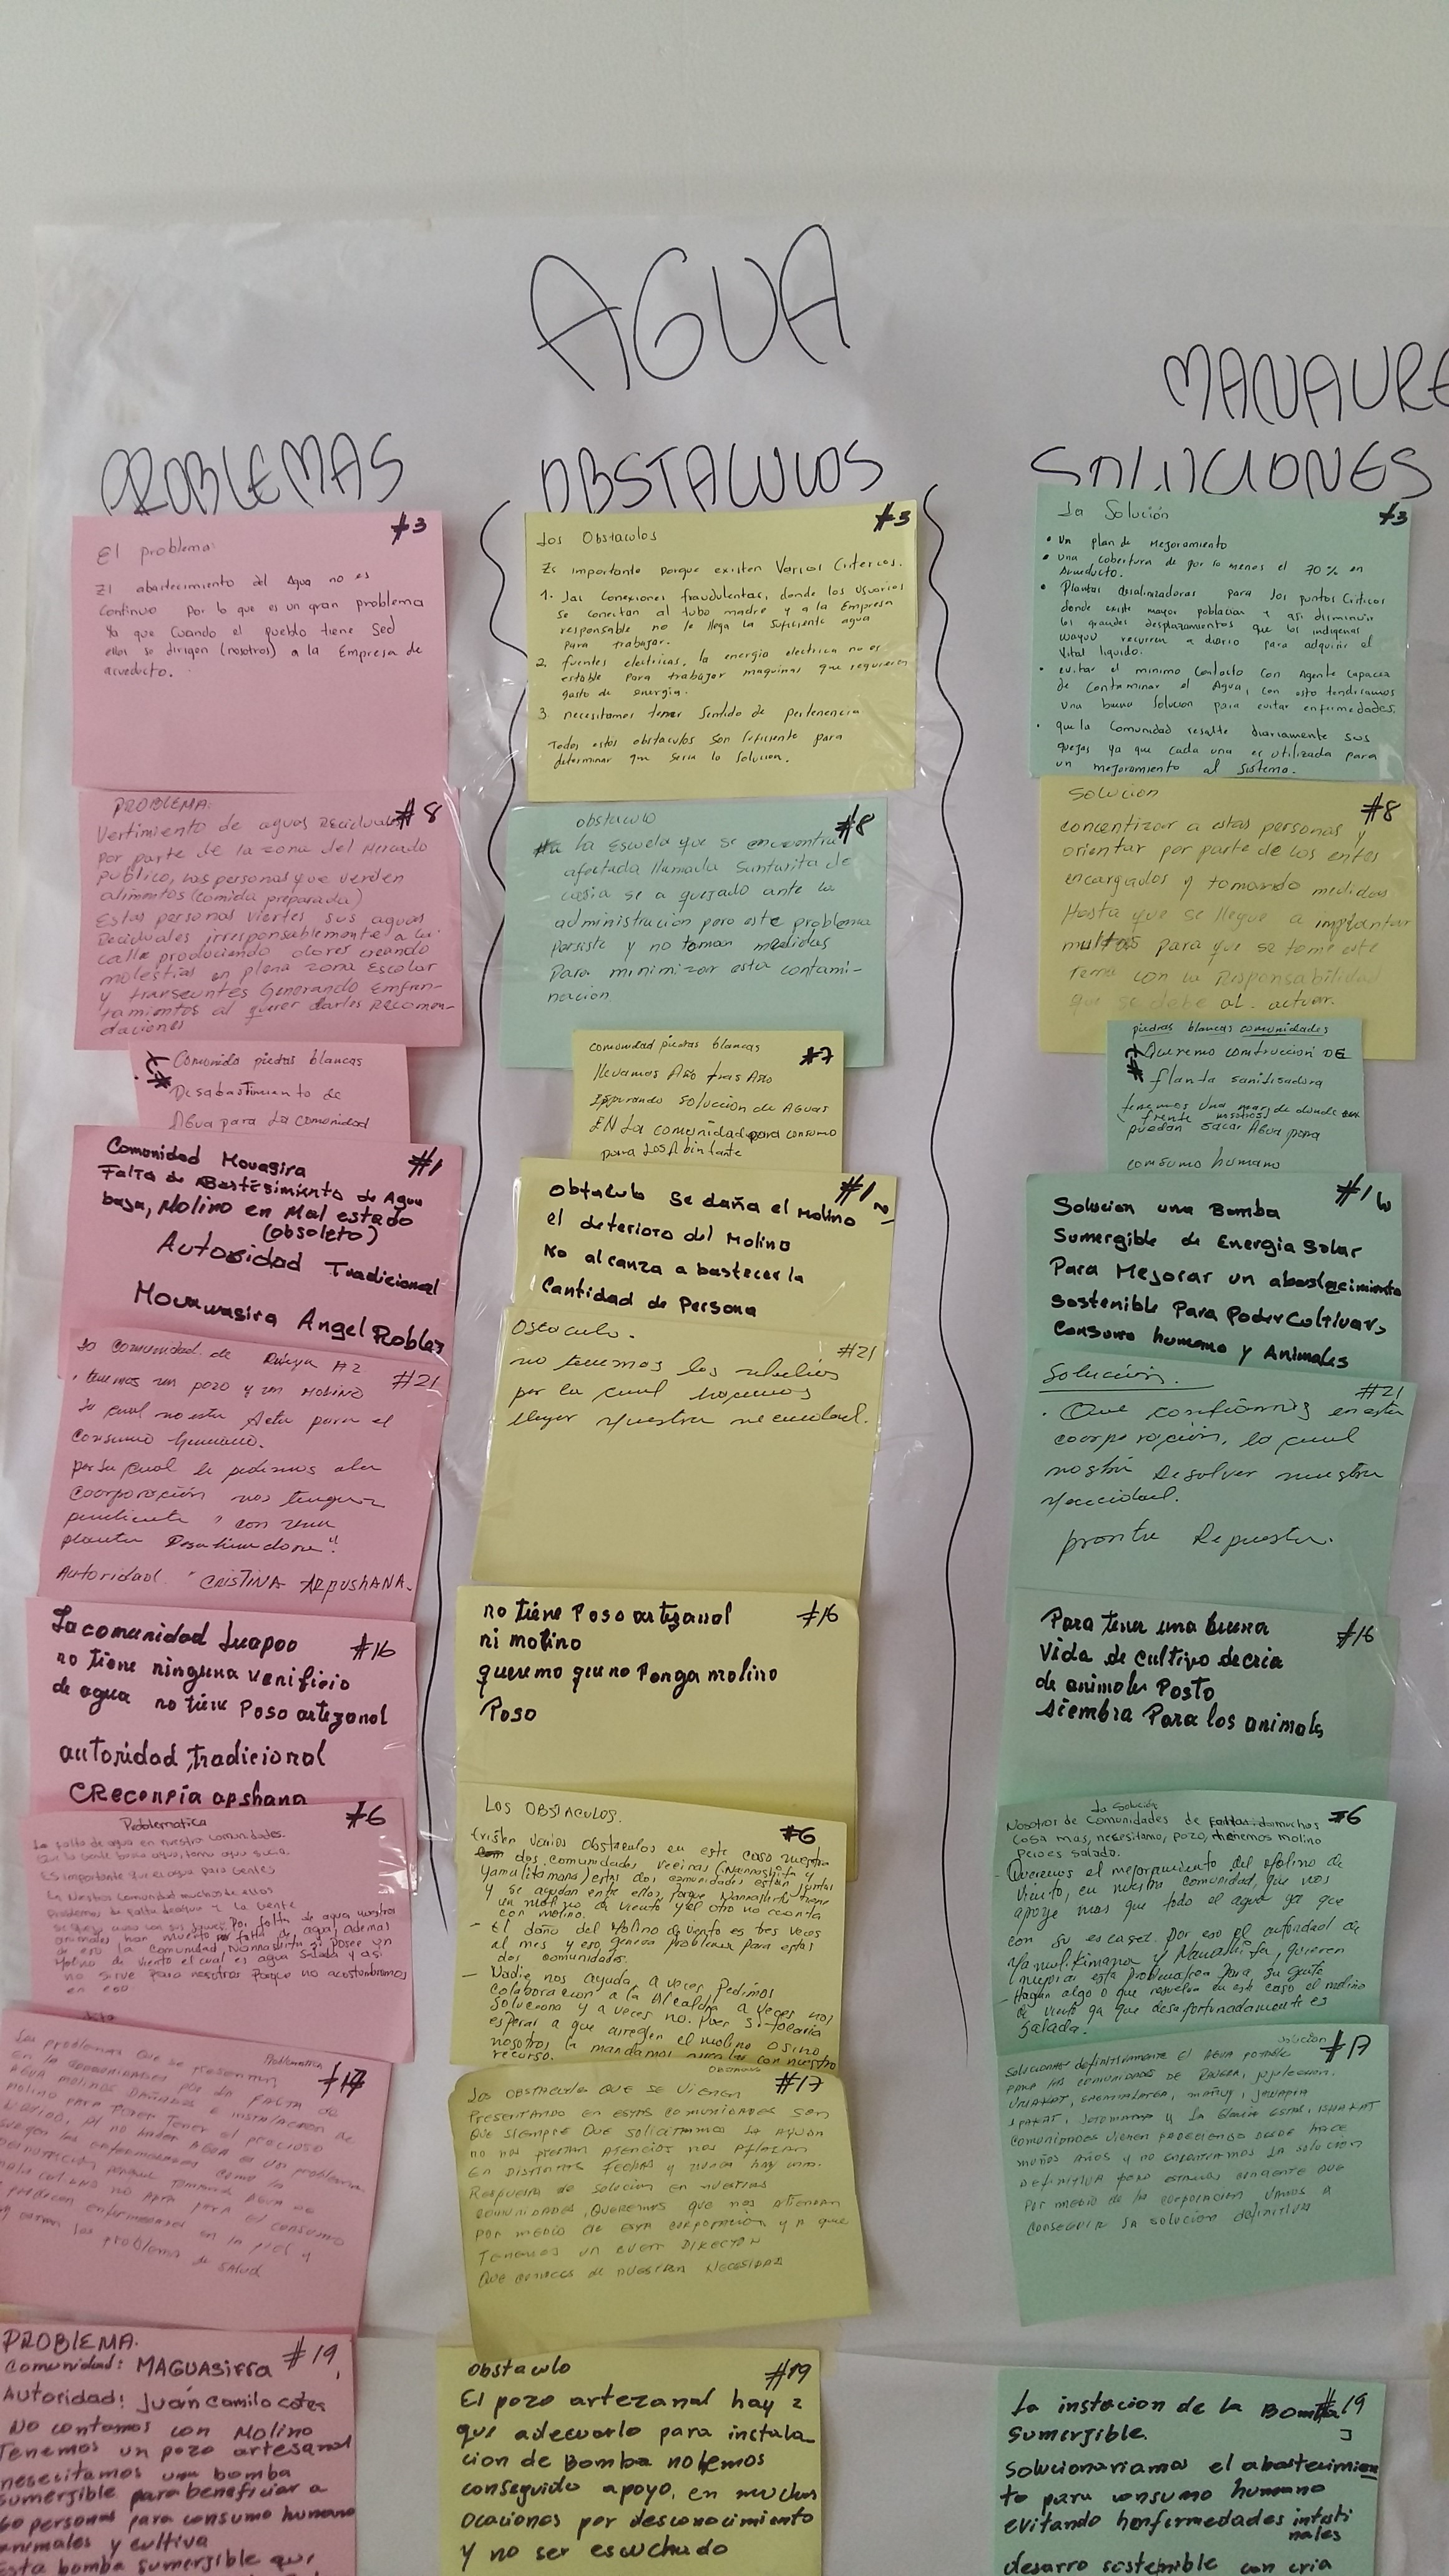 AGUA
MANAURE
PROBLEMAS
OBSTACULOS
SOLUCIONES
#3
El problema:
El abastecimiento del Agua no es
continuo por lo que es un gran problema
ya que cuando el pueblo tiene sed
ellos se dirigen (nosotros) a la Empresa de
acueducto.
#3
Los Obstaculos
Es importante porque existen Varios Criterios.
1. Las conexiones fraudulentas, donde los usuarios
se conectan al tubo madre y a la Empresa
responsable no le llega la suficiente agua
para trabajar.
2. fuentes electricas, la energia electrica no es
estable para trabajar maquinas que requieren
gasto de energia.
3. necesitamos tener Sentido de pertenencia
Todos estos obstaculos son suficiente para
determinar que seria la solucion.
#3
La Solución
• Un plan de Mejoramiento
• una cobertura de por lo menos el 70% en
Acueducto.
• Plantas desalinizadoras para los puntos Criticos
donde existe mayor poblacion y asi disminuir
los grandes desplazamientos que los indigenas
wayuu recurren a diario para adquirir el
Vital liquido.
• evitar el minimo Contacto con Agente Capaces
de Contaminar el Agua, con esto tendriamos
una buena Solucion para evitar enfermedades.
• que la Comunidad resalte diariamente sus
quejas ya que cada una es utilizada para
un mejoramiento al Sistema.
PROBLEMA: #8
Vertimiento de aguas Reciduales
por parte de la zona del Mercado
publico, las personas que venden
alimentos (comida preparada)
Estas personas viertes sus aguas
Reciduales irresponsablemente a la
calle produciendo olores creando
molestias en plena zona Escolar
y transeuntes Generando Enfren-
tamientos al querer darles Recomen-
daciones
obstaculo #8
La Escuela que se encuentra
afectada llamada Santarita de
casia se a quejado ante la
administración pero este problema
persiste y no toman medidas
Para minimizar esta contami-
nacion
Solucion #8
concentizar a estas personas y
orientar por parte de los entes
encargados y tomando medidas
Hasta que se llegue a implantar
multas para que se tome este
Tema con la Responsabilidad
que se debe al actuar.
Comunida piedras blancas
Desabastimiento de
Agua para La comunidad
comunidad piedras blancas #7
llevamos Año tras Año
Esperando solución de Aguas
EN La comunidad para consumo
para Los Abintante
piedras blancas comunidades
Queremo contruccion DE
planta sanitisadora
tenemos Una mar de donde
frente nosotros
puedan sacar Agua para
consumo humano
Comunidad Mouasira #1
Falta de Abastesimiento de Agua
baja, Molino en Mal estado
(obsoleto)
Autoridad Tradicional
Mouwasira Angel Robles
#1
obtaculo se daña el Molino
el deterioro del Molino
No alcanza a bastecer la
Cantidad de Persona
#1
Solucion una Bomba
Sumergible de Energia Solar
Para Mejorar un abastecimiento
sostenible Para Poder Cultivar,
Consumo humano y Animales
La Comunidad de #2
#21
, tenemos un pozo y un Molino
La cual no esta Acta para el
consumo humano.
por la cual le pedimos ala
coorporación nos tenga
pendiente "con una
planta
Autoridad. "CRISTINA ARPUSHANA.
Ostaculo. #21
no tenemos los
por la cual hacemos
llegar nuestra necesidad.
Solución. #21
. Que confiamos en esta
coorporación, lo cual
Resolver nuestra
nececidad.
pronta Repuesta.
La comunidad Juapoo #16
no tiene ninguna venificio
de agua no tiene Poso artezanal
autoridad tradicional
CReconpia apshana
no tiene Poso artezanal #16
ni molino
queremo que no Ponga molino
Poso
Para tener una buena #16
Vida de cultivo de cria
de animales Posto
siembra Para los animals
#6
Problematica
La falta de agua en nuestra comunidades.
ES importante que el agua para gentes
animales han muerto por falta de agua, ademas
de eso la comunidad Nannashitu si posee un
Molino de viento el cual es agua salada y asi
no sirve para nosotros porque no acostumbramos
en eso.
LOS OBSTACULOS. #6
Existen Varios Obstaculos en este caso nuestra
dos comunidades vecinas (Nannashitu y
Yamulitamana) estas dos comunidades estan juntas
y se ayudan entre ellos, porque Nannashitu tiene
un molino de viento y el otro no cuenta
con molino.
- El daño del Molino de viento es tres veces
al mes y eso genera problemas para estas
dos comunidades.
- Nadie nos ayuda a veces Pedimos
colaboracion a la Alcaldia a veces nos
soluciona y a veces no. Pues si tocaria
esperar a que arreglen el molino o sino
nosotros la mandamos con nuestro
recurso.
La Solución #6
Nosotros de Comunidades de muchos
cosa mas, necesitamos, pozo, tenemos molino
pero es salado.
- Queremos el mejoramiento del Molino de
viento, en nuestra comunidad, que nos
apoye mas que todo el agua ya que
con su escasez. Por eso el autoridad de
quieren
limpiar esta problematica para su gente
- Hagan algo o que resuelva en este caso el molino
de viento ya que desafortunadamente es
salada.
Problematica #17
Los problemas que se presentan
en la comunidades por la FALTA de
AGUA molinos Dañados e instalacion de
molino para poder tener el precioso
liquido, Al no haber AGUA es un problema
enfermedades como la
desnutricion porque tomamos AGUA de
mala calidad no APTA para el consumo
padecen enfermedades en la piel y
problema de salud
#17
Los OBSTACULOS QUE SE VIENEN
PRESENTANDO EN ESTAS COMUNIDADES SON
QUE SIEMPRE QUE SOLICITAMOS LA AYUDA
no nos prestan ATENCION nos APLAZAN
EN DISTINTAS FECHAS y nunca hay una
Respuesta de solucion en nuestras
comunidades, QUEREMOS que nos ATIENDAN
por medio de esta corporacion y a que
TENEMOS un buen DIRECTOR
QUE conoces de nuestra necesidad
solucion #17
solucionar definitivamente el AGUA POTABLE
para las comunidades de
comunidades vienen padeciendo desde hace
muchos años y no encontramos la solucion
definitiva pero estamos
por medio de la corporacion vamos a
conseguir la solucion definitiva
PROBLEMA. #19
Comunidad: MAGUASirra
Autoridad: Juan Camilo cotes
No contamos con Molino
Tenemos un pozo artesanal
nesesitamos una bomba
sumergible para beneficiar a
60 personas para consumo humano
animales y cultiva
Esta bomba sumergible que
obstaculo #19
El pozo artezanal hay
que adecuarlo para instala
cion de Bomba no hemos
conseguido apoyo, en muchas
ocaciones por desconocimiento
y no ser escuchado
La instacion de la Bomba #19
sumergible.
solucionariamos el abastecimien
to para consumo humano
evitando henfermedades intesti
nales
desarro sostenible con cria